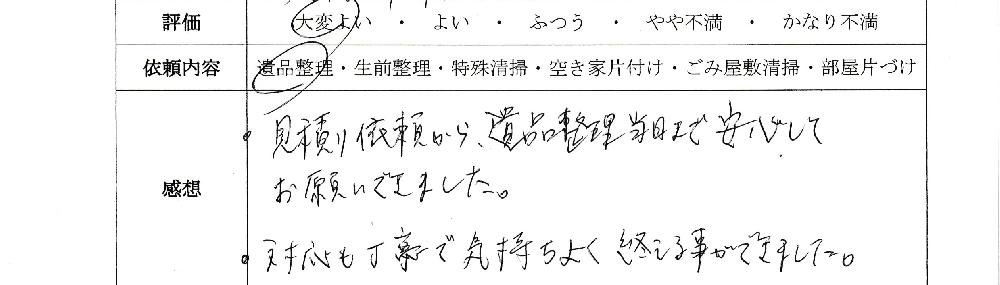 評価 大変よい ・ よい ・ ふつう ・ やや不満 ・ かなり不満
依頼内容 遺品整理・生前整理・特殊清掃・空き家片付け・ごみ屋敷清掃・部屋片づけ
感想
・見積り依頼から、遺品整理当日まで安心して
お願いできました。
・対応も丁寧で気持ちよく終える事ができました。